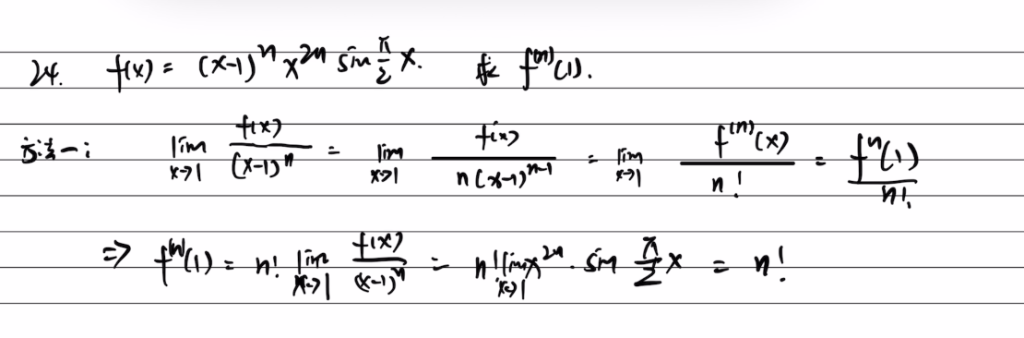 24. f(x) = (x-1)^n x^{2n} sin π/2 x. 求 f^{(n)}(1).
方法一: lim_{x→1} f(x)/(x-1)^n = lim_{x→1} f(x)/n(x-1)^{n-1} = lim_{x→1} f^{(n)}(x)/n! = f^n(1)/n!
⇒ f^{(n)}(1) = n! lim_{x→1} f(x)/(x-1)^n = n! lim_{x→1} x^{2n} · sin π/2 x = n!